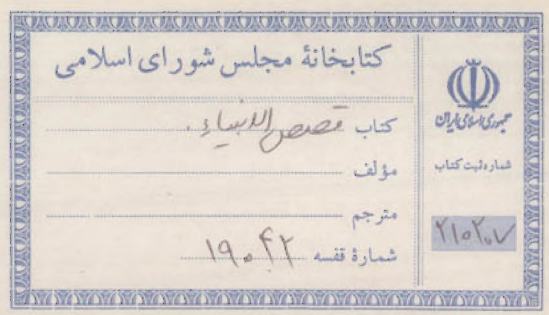 کتابخانهٔ مجلس شورای اسلامی
کتاب قصص الانبیاء.
مؤلف
مترجم
شمارهٔ قفسه ۱۹۰۴۲
جمهوری اسلامی ایران
شماره ثبت کتاب
۲۱۰۲۰۷